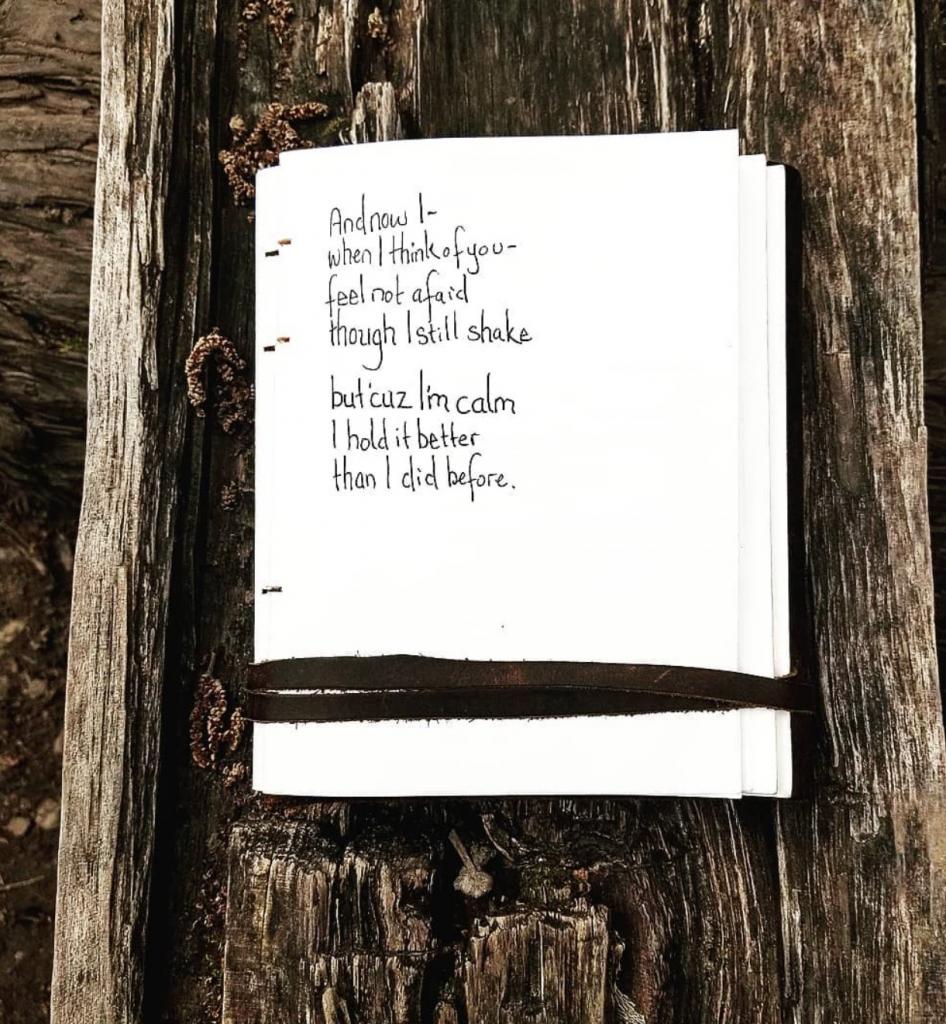 And now I-
when I think of you-
feel not afaid
though I still shake
but 'cuz I'm calm
I hold it better
than I did before.